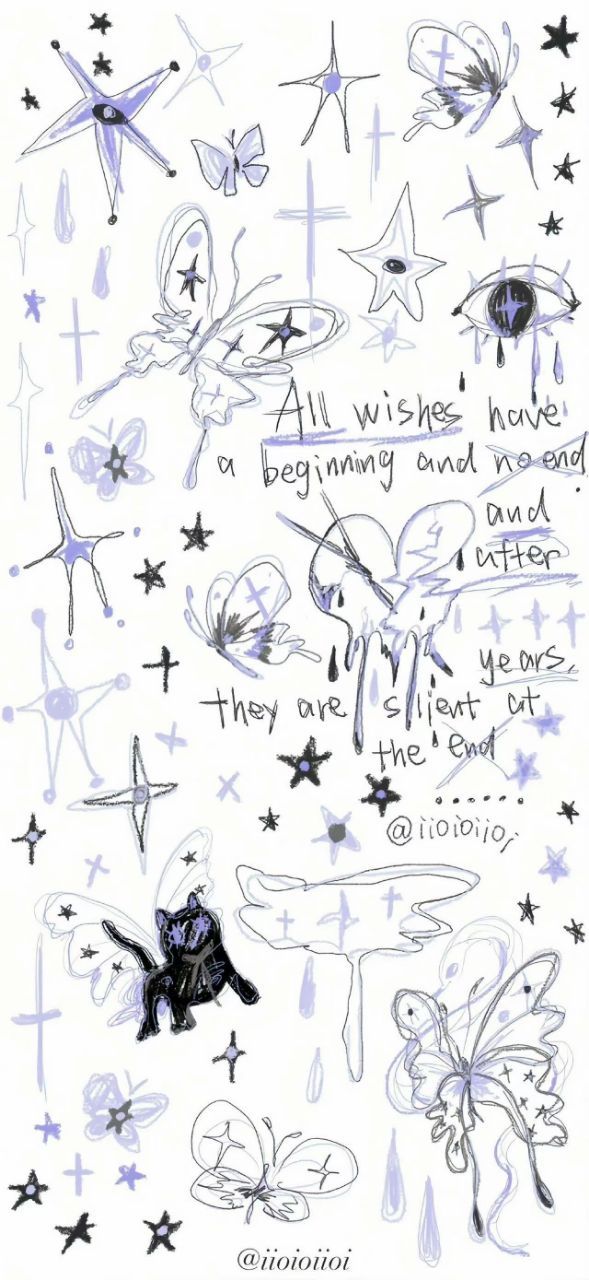 All wishes have
a beginning and no end.
and
after
years,
they are silent at
the end
......
@iioioiioi
@iioioiioi